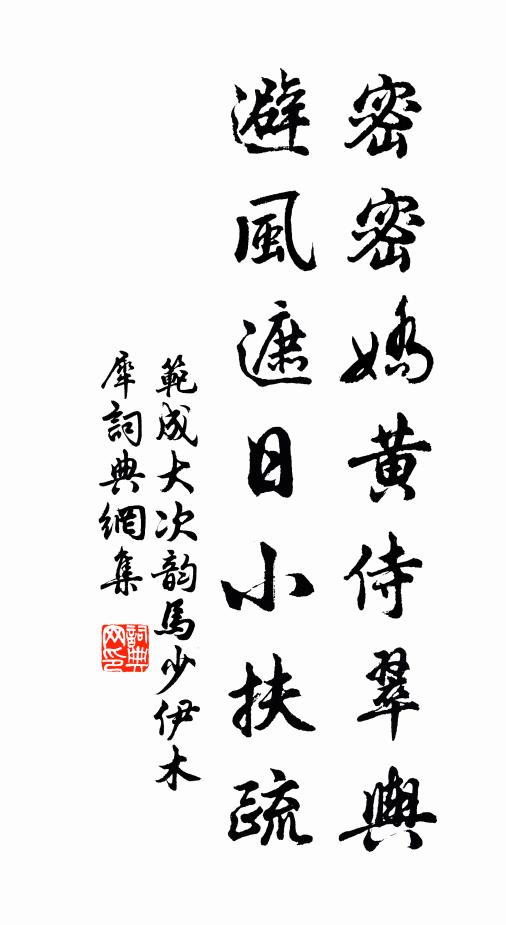 密密嬌黃侍翠輿
避風遮日小扶疏
範成大次韵馬少伊木
犀詞典網集
詞典網印